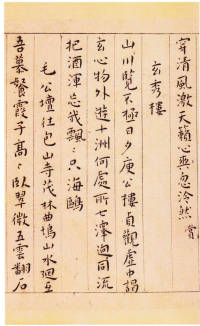 穿清風激天籟心與忽泠然 賞
玄秀樓
山川覽不極日夕庾公樓貞觀虛中謁
玄心物外遊十洲何處所七澤迥同流
把酒渾忘我飄：只海鷗
毛公壇往包山寺茂林曲塢山水迴互
吾慕餐霞子高：臥翠微五雲翻石